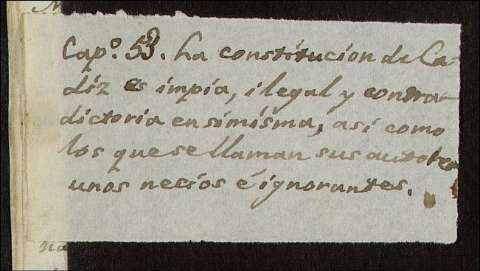 Capº. 53. La constitucion de Ca-
diz es impía, ilegal y contra-
dictoria en simisma, asi como
los que se llaman sus autores
unos necios é ignorantes.